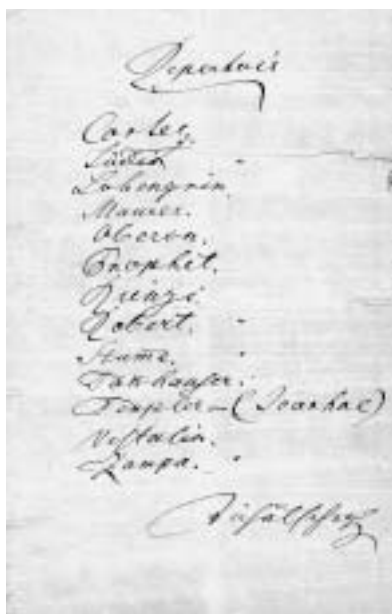 Repertoir
Cortez.
Jüdin "
Lohengrin.
Maurer.
Oberon.
Prophet.
Rienzi.
Robert. "
Stume. "
Tanhauser.
Templer – (Ivanhoe)
Vestalin.
Zampa. "